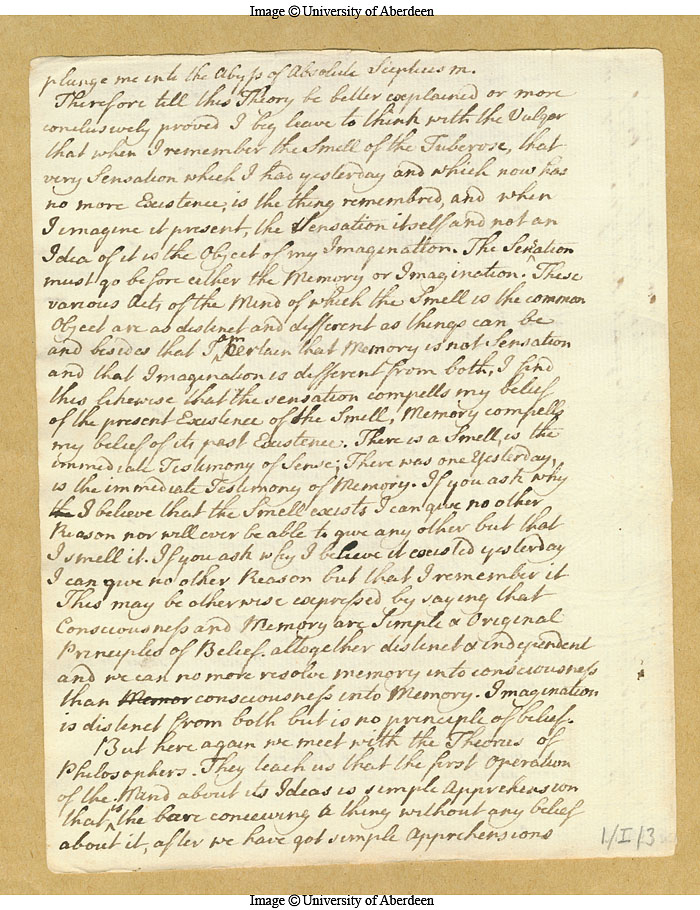 Image © University of Aberdeen
plunge me into the Abyss of Absolute Scepticism.
Therefore till this Theory be better explained or more
conclusively proved I beg leave to think with the Vulgar
that when I remember the Smell of the Tuberose, that
very Sensation which I had yesterday and which now has
no more Existence, is the thing remembred, and when
I imagine it present, the Sensation itself and not an
Idea of it is the Object of my Imagination. The Sensation
must go before either the Memory or Imagination. These
various Acts of the Mind of which the Smell is the common
Object are as distinct and different as things can be
and besides that I am certain that Memory is not Sensation
and that Imagination is different from both, I find
this likewise that the sensation compells my belief
of the present Existence of the Smell, Memory compells
my belief of its past Existence. There is a Smell, is the
immediate Testimony of Sense; There was one Yesterday,
is the immediate Testimony of Memory. If you ask why
I believe that the Smell exists I can give no other
Reason nor will ever be able to give any other but that
I smell it. If you ask why I believe it existed yesterday
I can give no other Reason but that I remember it
This may be otherwise expressed by saying that
Consciousness and Memory are Simple & Original
Principles of Belief. altogether distinct & independent
and we can no more resolve memory into consciousness
than Memor consciousness into Memory. Imagination
is distinct from both but is no principle of belief.
But here again we meet with the Theories of
Philosophers. They teach us that the first Operation
of the Mind about its Ideas is simple Apprehension
that is the bare conceiving a thing without any belief
about it, after we have got simple Apprehensions
1/I/3
Image © University of Aberdeen